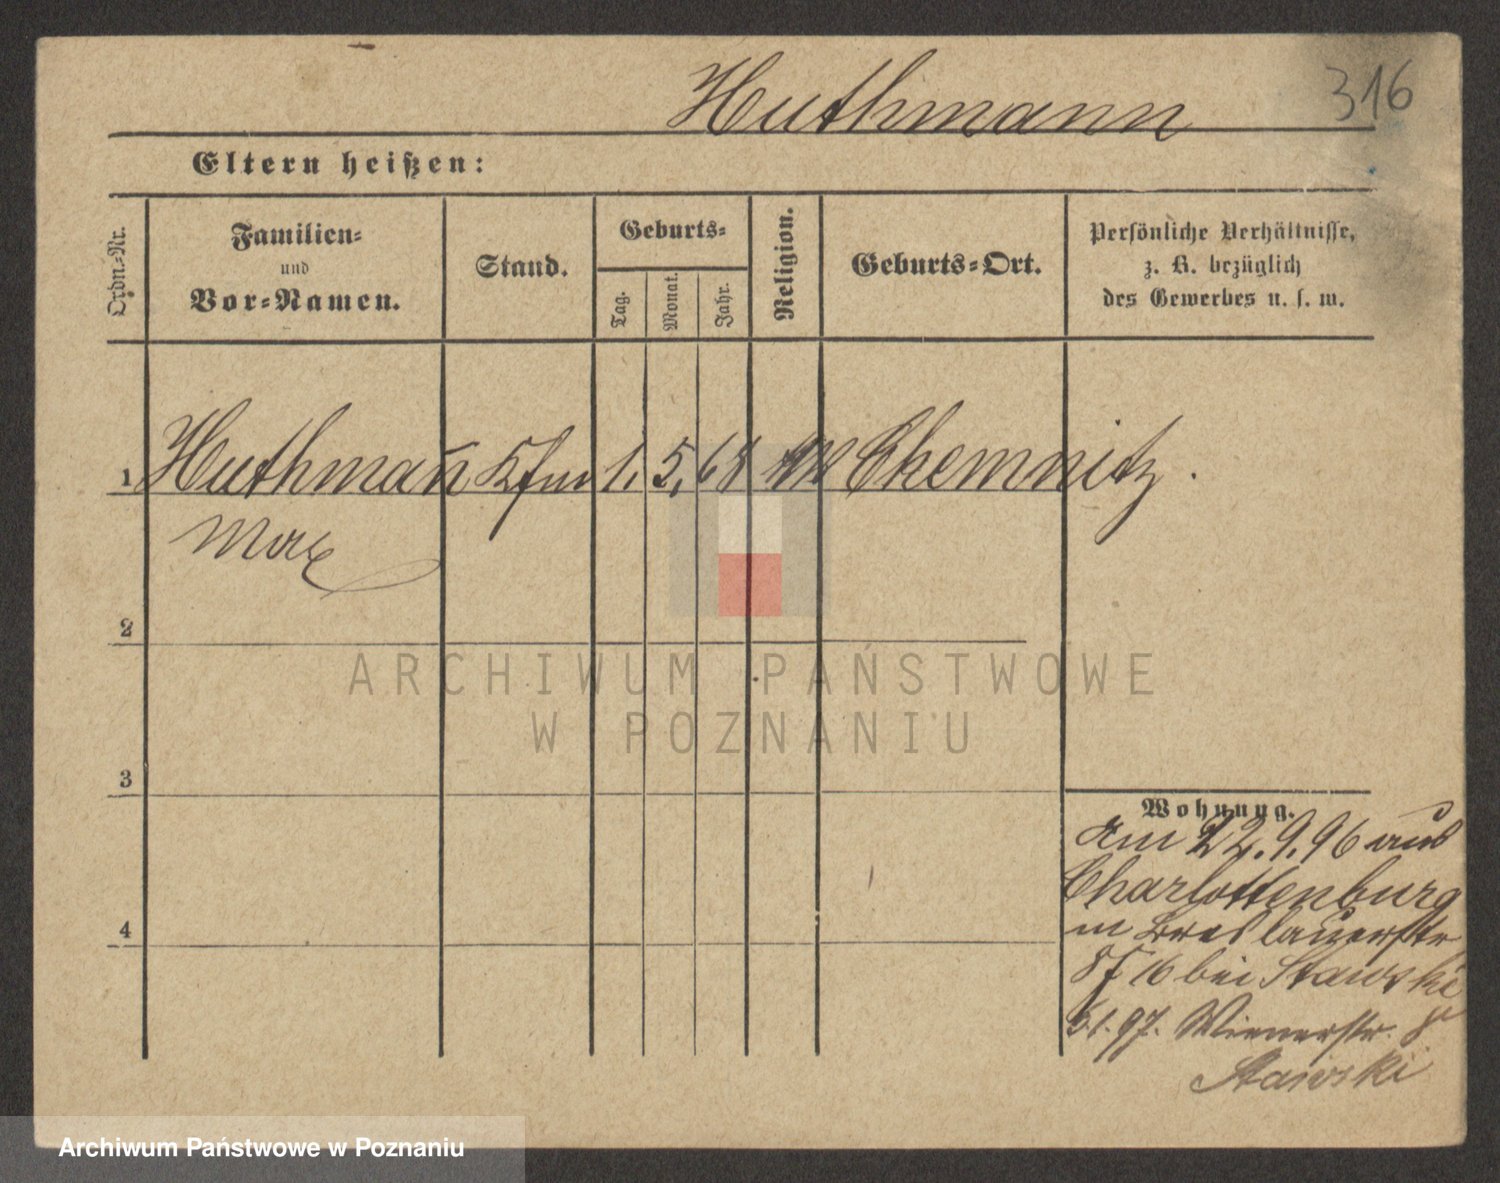 Huthmann
316
Eltern heißen:
Ordn.-Nr.
Familien-
und
Vor-Namen.
Stand.
Geburts-
Tag.
Monat.
Jahr.
Religion.
Geburts-Ort.
Persönliche Verhältnisse,
z. B. bezüglich
des Gewerbes u. s. w.
1 Huthman̄ Kfm 1. 5. 68 Chemnitz.
Max
2
3
4
Wohnung.
Am 22.9.96 aus
Charlottenburg
in Breslauerstr
16 bei Stawski
1.97. Wienerstr.
Stawski
ARCHIWUM PAŃSTWOWE
W POZNANIU
Archiwum Państwowe w Poznaniu